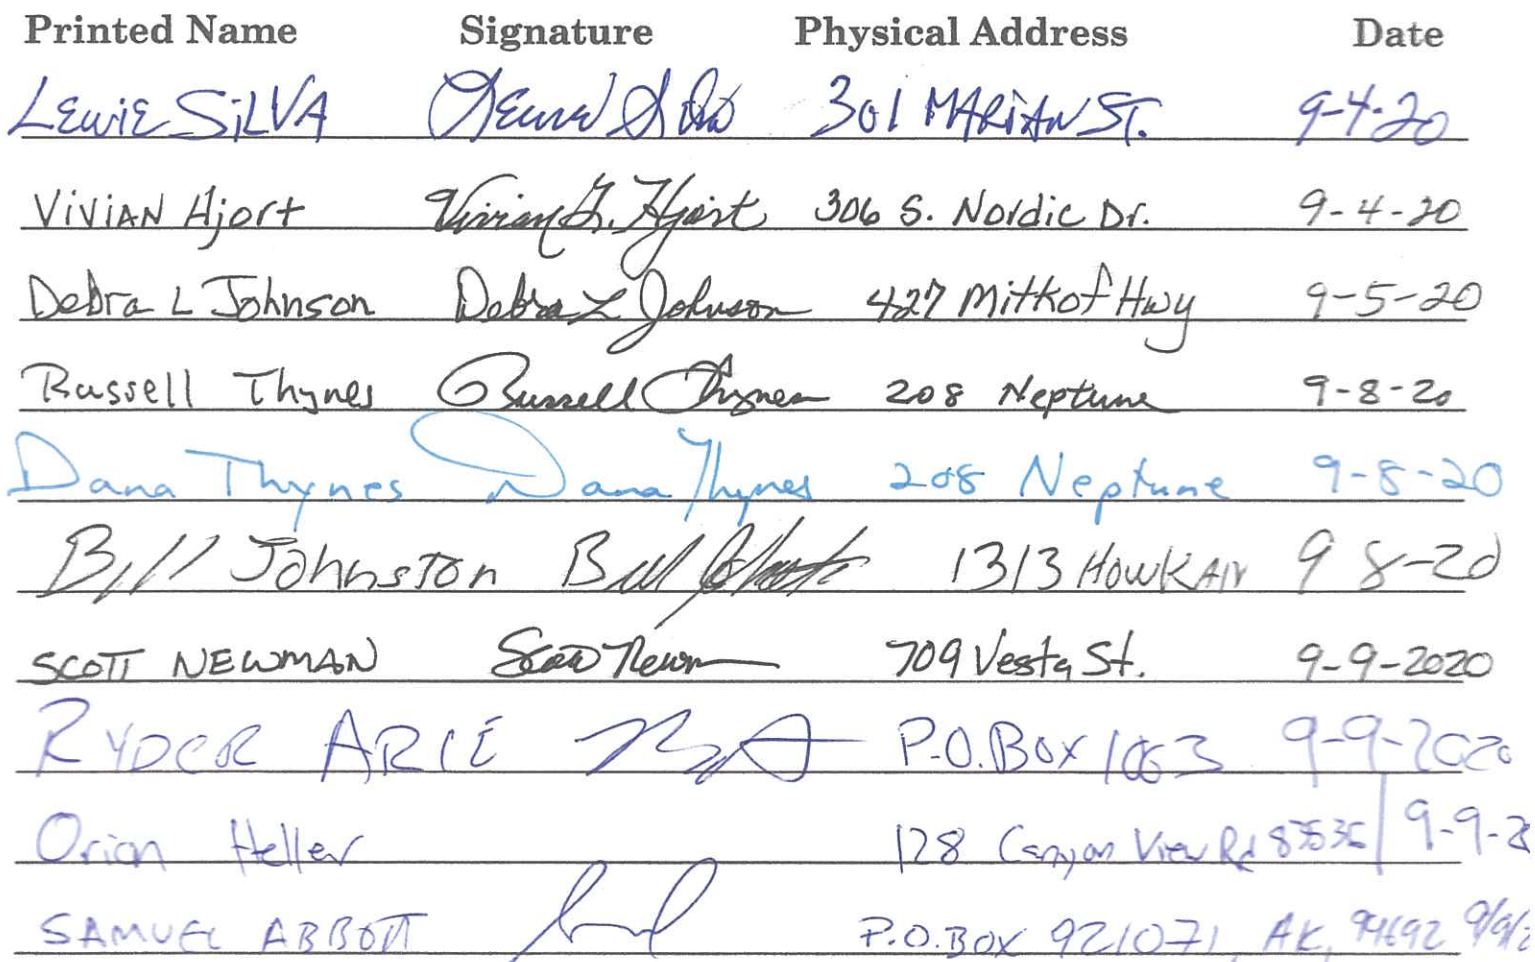 Printed Name Signature Physical Address Date
LEWIE SILVA 301 MARIAN ST. 9-4-20
ViViAN Hjort Vivian G. Hjort 306 S. Nordic Dr. 9-4-20
Debra L Johnson Debra L Johnson 427 Mitkof Hwy 9-5-20
Russell Thynes Russell Thynes 208 Neptune 9-8-20
Dana Thynes Dana Thynes 208 Neptune 9-8-20
Bill Johnston Bill 1313 HOWKAN 9 8-20
SCOTT NEWMAN Scott Newm 709 Vesta St. 9-9-2020
RYDER ARIE P.O. Box 1063 9-9-2020
Orion Heller 128 Canyon View Rd 9-9-2
SAMUEL ABBOTT P.O. BOX 921071, AK, 9/9/2